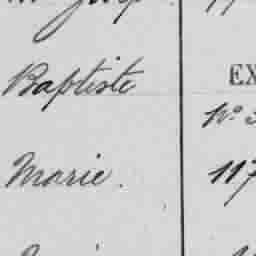 Baptiste
EX
N°
Marie.
117